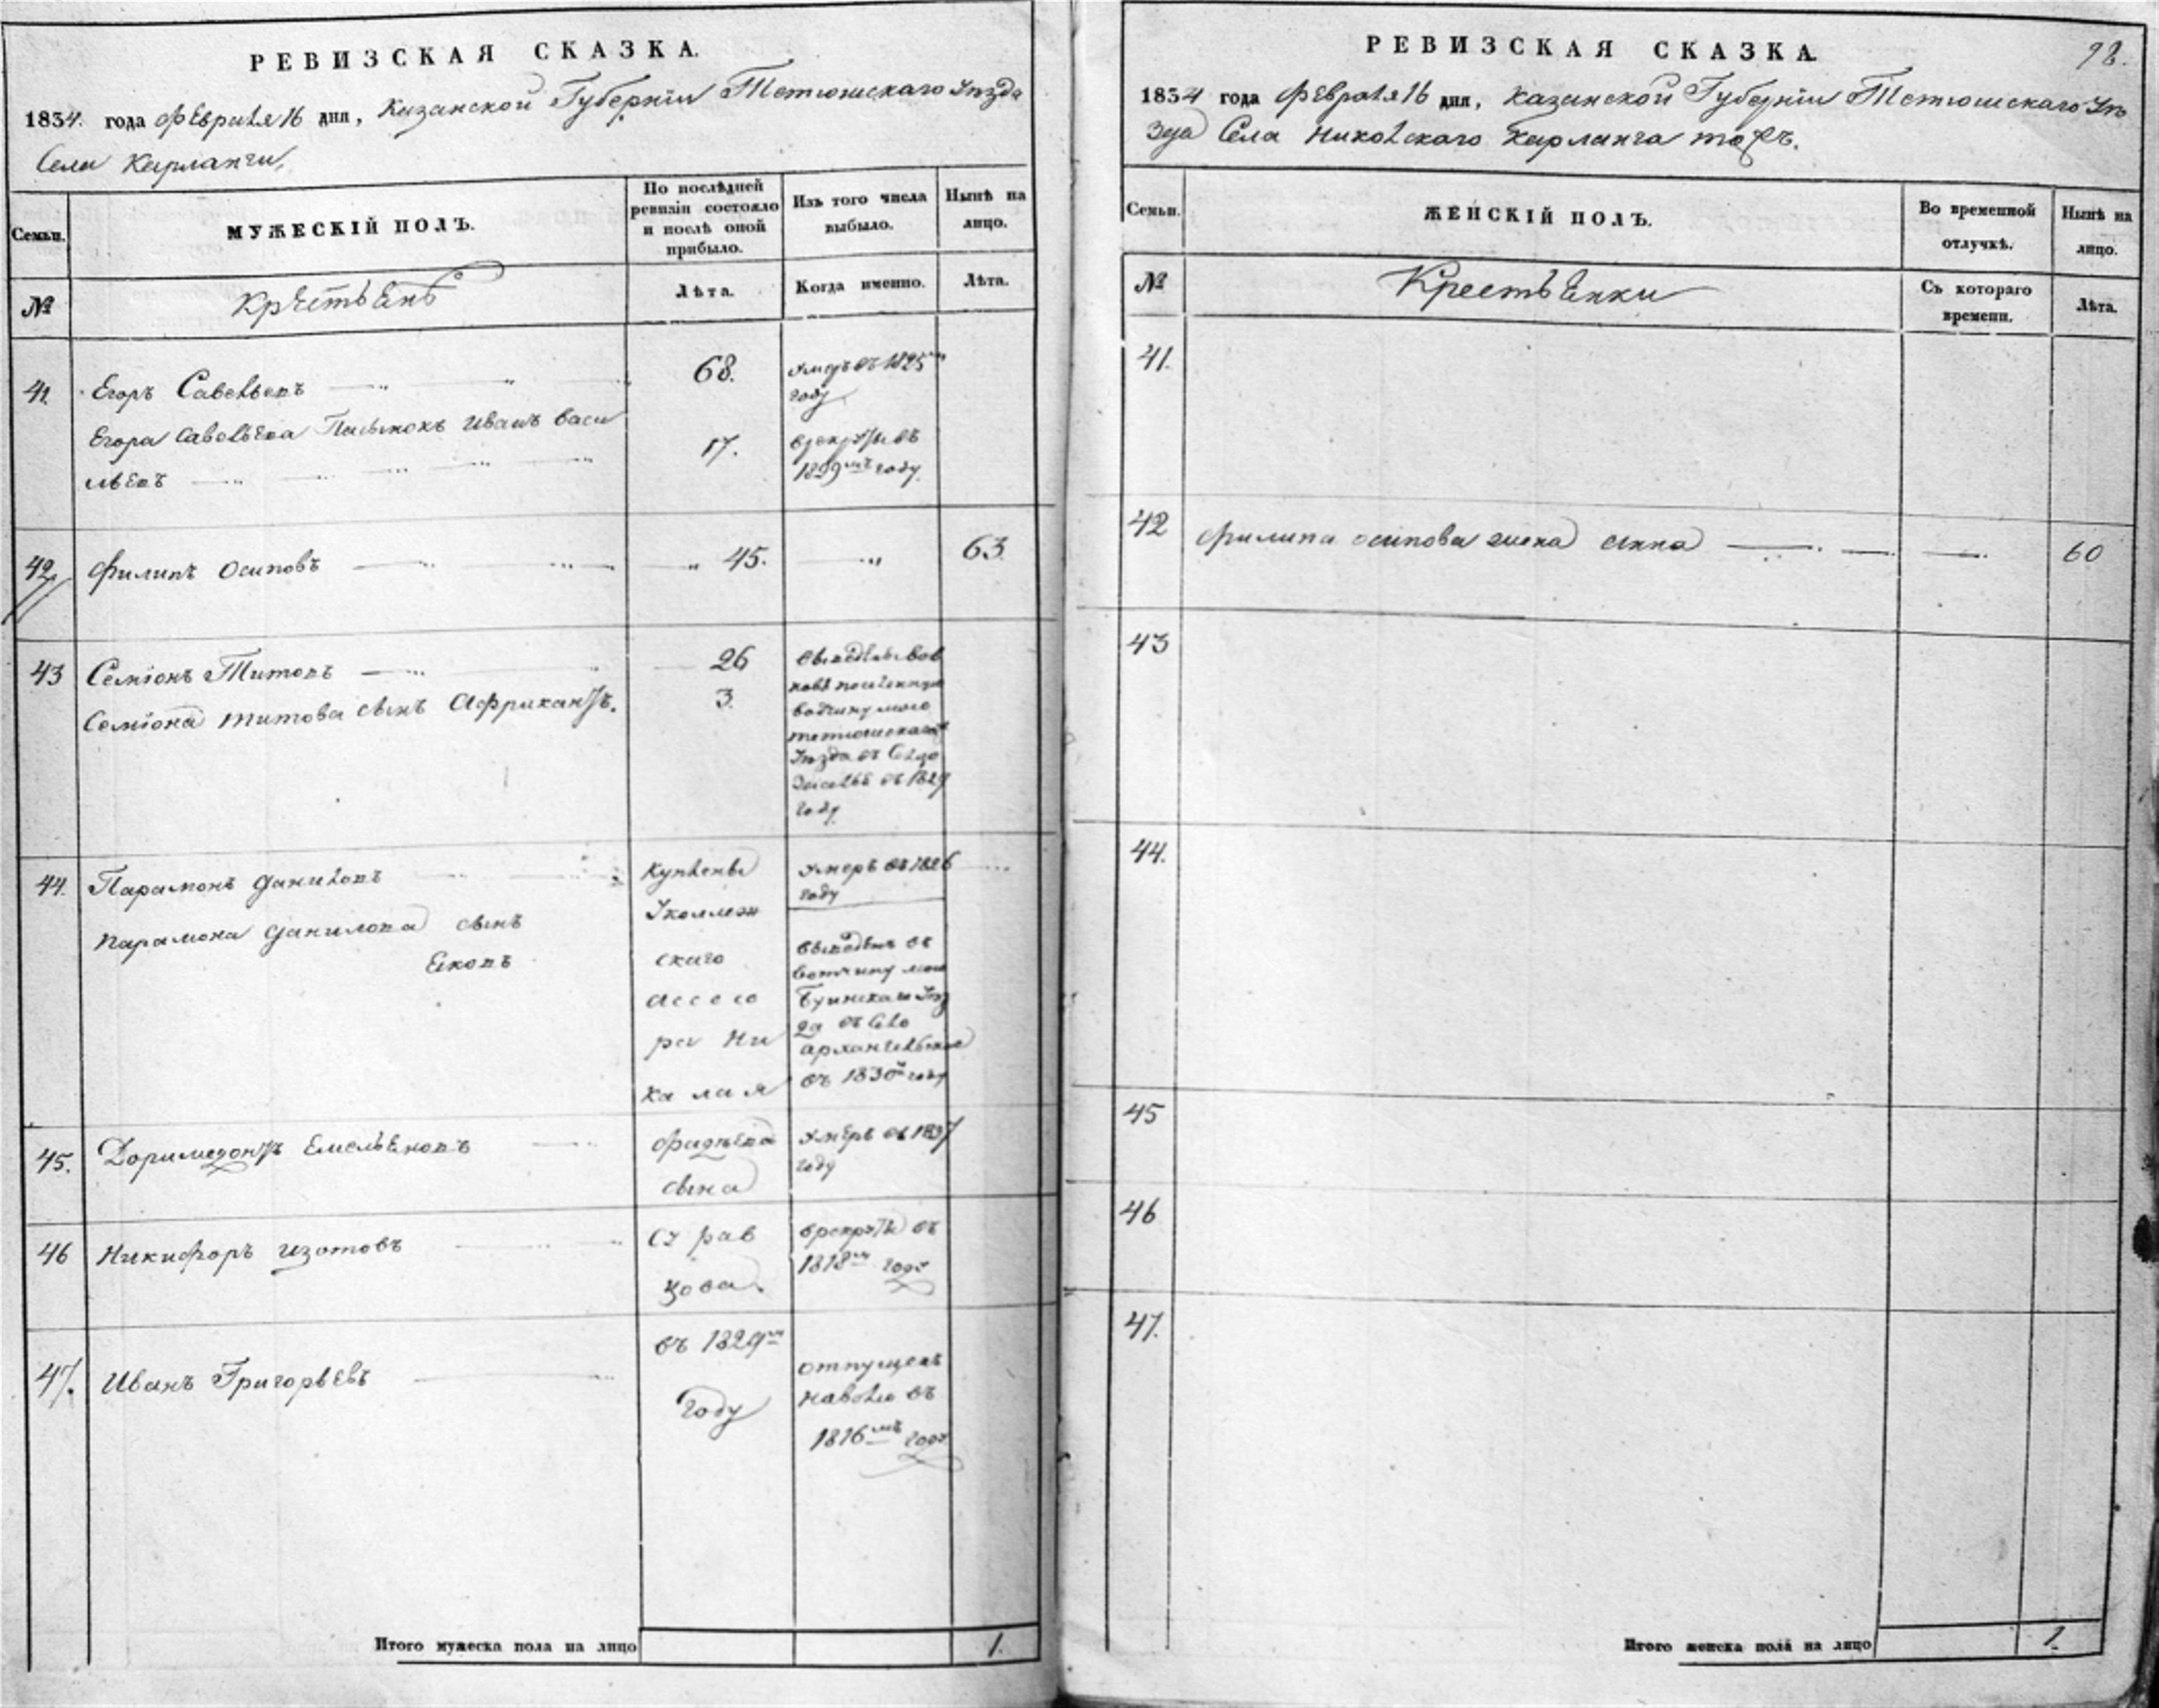 РЕВИЗСКАЯ СКАЗКА.
1834. года Февраля 16 дня, Казанской Губернiи Тетюшскаго Уѣзда
Села Карланги,
Семьи.
МУЖЕСКIЙ ПОЛЪ.
По послѣдней
ревизiи состояло
и послѣ оной
прибыло.
Изъ того числа
выбыло.
Нынѣ на
лицо.
№
Крѣстьѣнѣ
Лѣта.
Когда именно.
Лѣта.
41.
Егоръ Савельевъ
68.
Умеръ въ 1825мъ
году
Егора Савельева Пасынокъ Иванъ Васи
льевъ
17.
врекруты въ
1829мъ году
42
Филипъ Осиповъ
45.
63
43
Семiонъ Титовъ
26
Семiона Титова сынъ Африкантъ.
3.
вотчину мою
тетюшскаго
Уѣзда въ Сельцо
въ 1829
году
44.
Парамонъ Даниловъ
Умеръ въ 1826
году
Парамона Данилова сынъ
Яковъ
Куплены
У коллеж
скаго
ассесо
ра Ни
калая
выведенъ въ
вотчину мою
Буинскаго Уѣз
да въ Село
архангельское
въ 1830м году
45.
Доримедонтъ Емельяновъ
Фадѣева
сына
Умеръ въ 1827
году
46
Никифоръ Изотовъ
врекруты въ
1818м году
47.
Иванъ Григорьевъ
въ 1829м
году
отпущенъ
наволю въ
1816мъ году
Итого мужеска пола на лицо
1.
РЕВИЗСКАЯ СКАЗКА
98.
1834 года Февраля 16 дня, Казанской Губернiи Тетюшскаго Уѣ
зда Села Никольскаго Карланга тожъ.
Семьи.
ЖЕНСКIЙ ПОЛЪ.
Во временной
отлучкѣ.
Нынѣ на
лицо.
№
Крестьѣнки
Съ котораго
времени.
Лѣта.
41.
42
Филипа Осипова жена Анна
60
43
44.
45
46
47.
Итого женска пола на лицо
1.